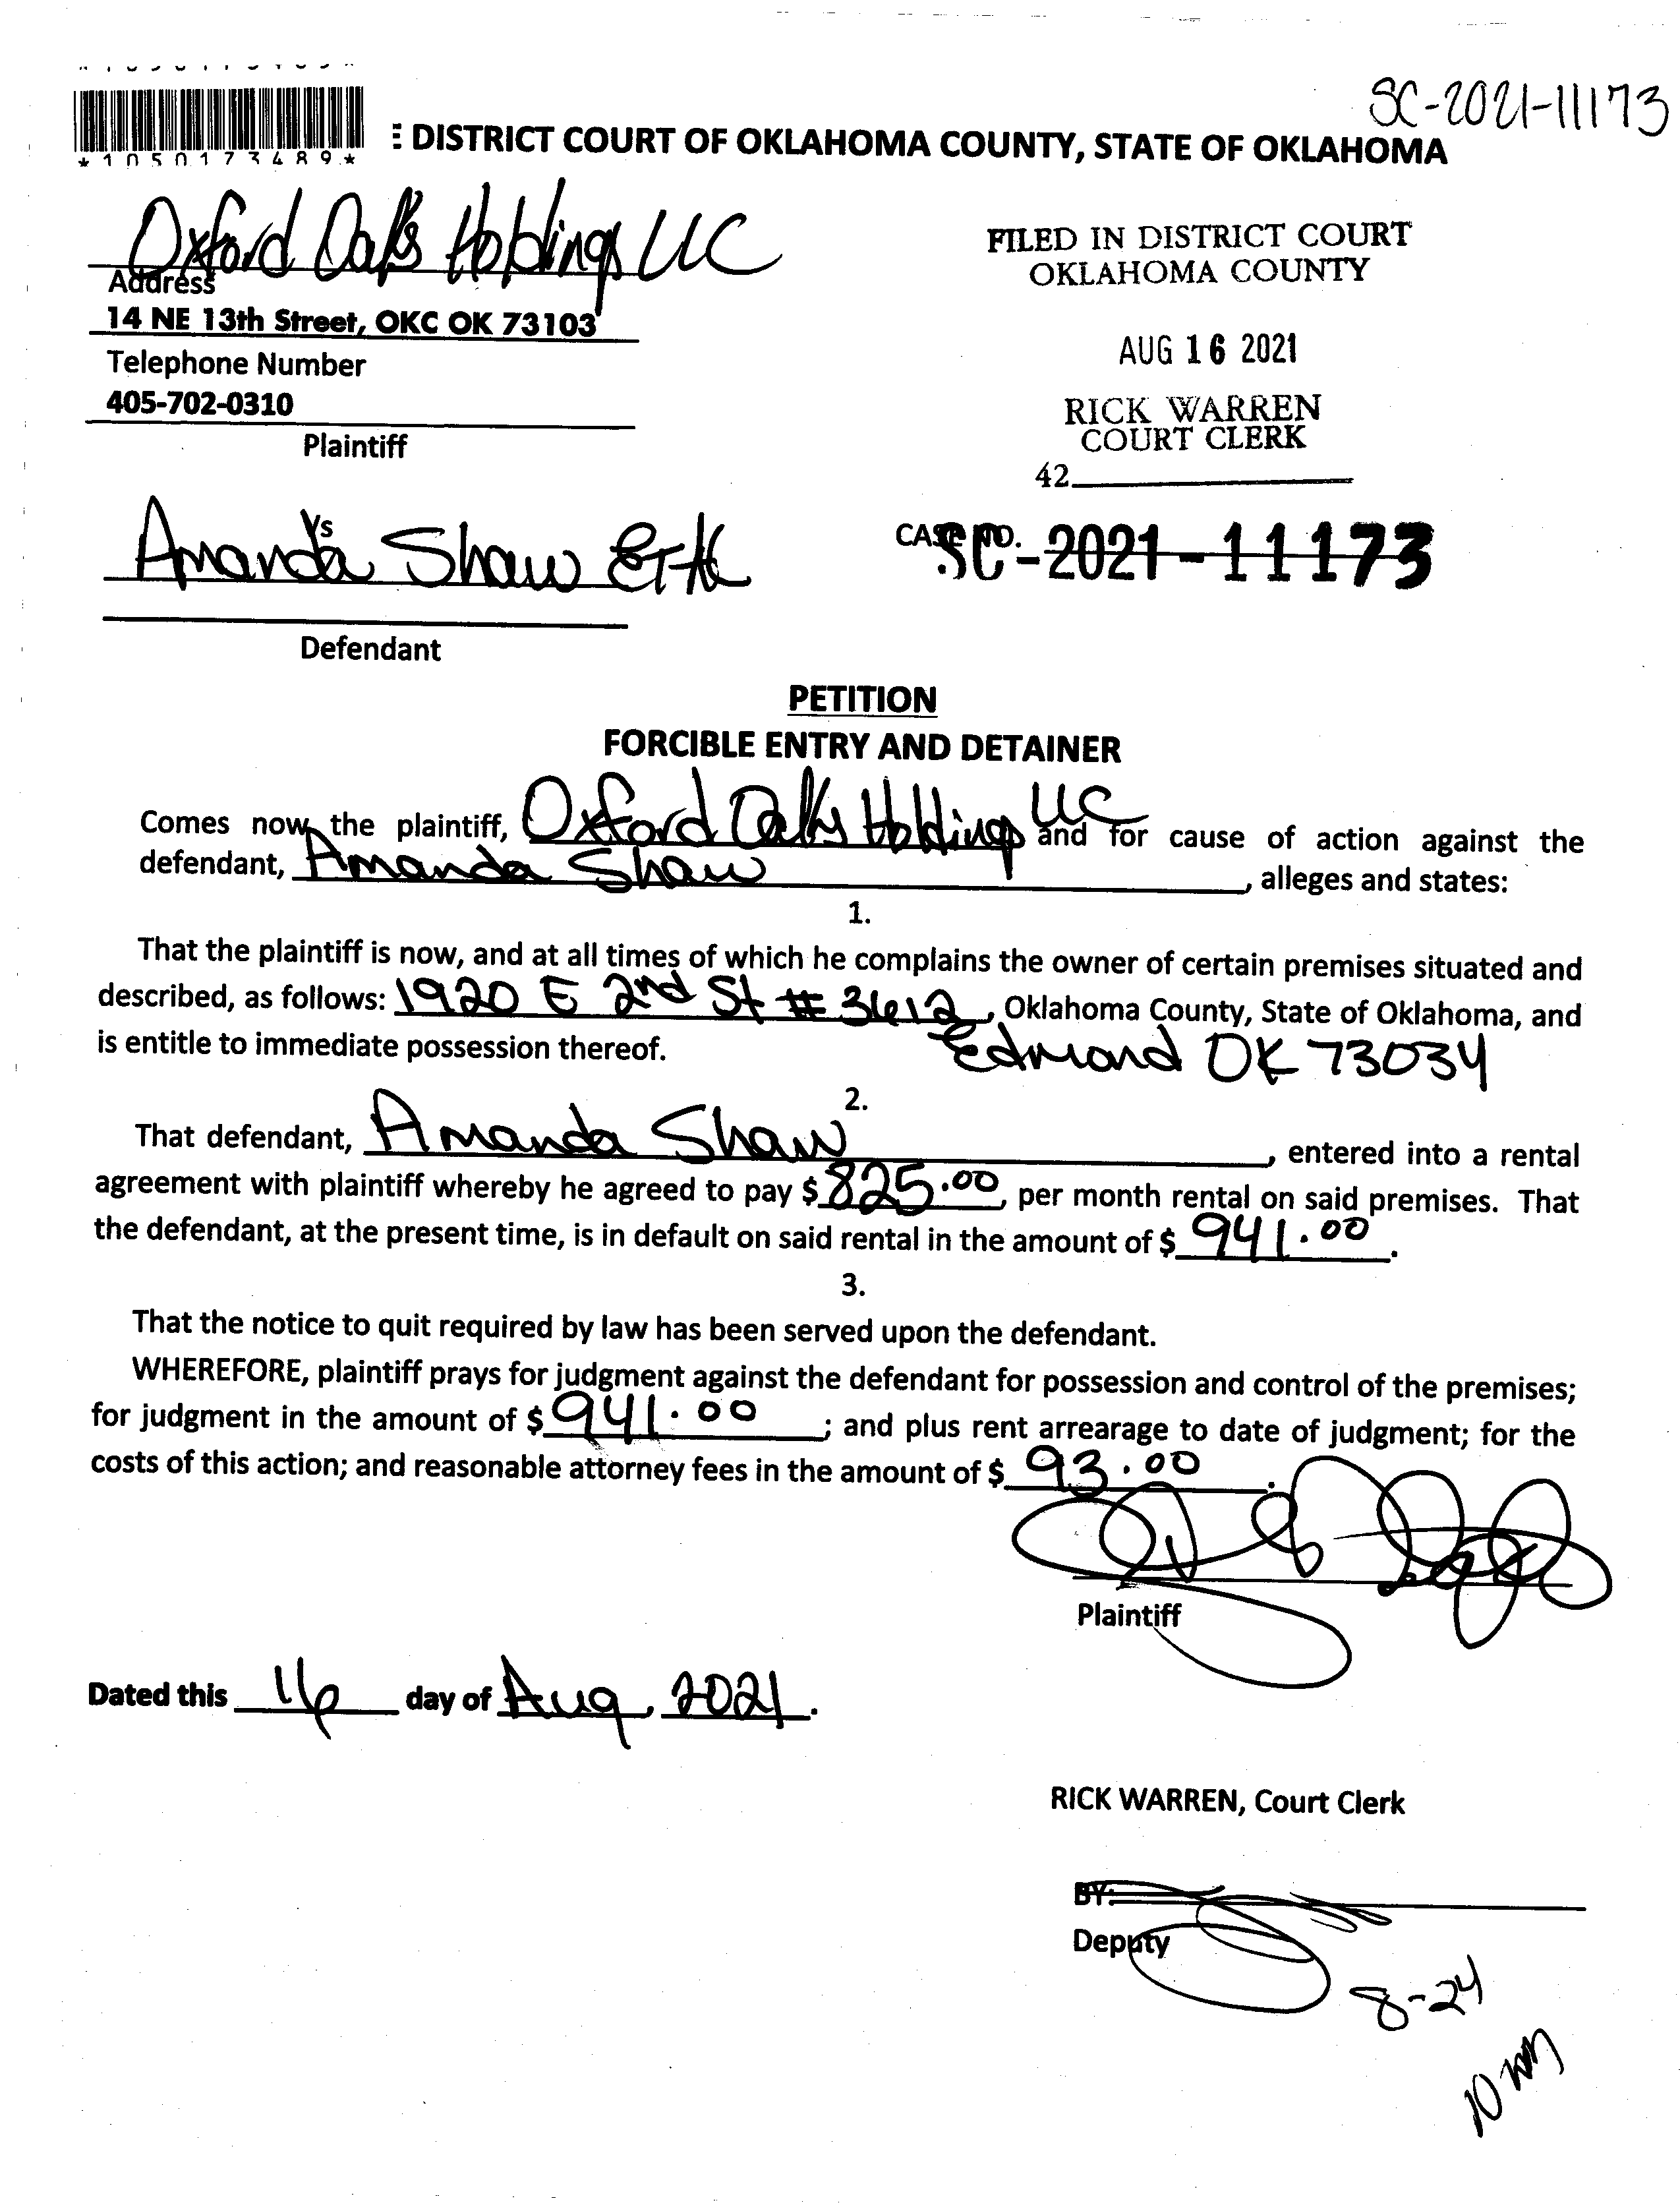 SC-2021-11173
*1050173489*
E DISTRICT COURT OF OKLAHOMA COUNTY, STATE OF OKLAHOMA
Oxford Oaks Holdings LLC
Address
14 NE 13th Street, OKC OK 73103
Telephone Number
405-702-0310
Plaintiff
FILED IN DISTRICT COURT
OKLAHOMA COUNTY
AUG 16 2021
RICK WARREN
COURT CLERK
42
Vs
Amanda Shaw Et Al
Defendant
CASE NO.
SC-2021-11173
PETITION
FORCIBLE ENTRY AND DETAINER
Comes now, the plaintiff, Oxford Oaks Holdings LLC and for cause of action against the
defendant, Amanda Shaw, alleges and states:
1.
That the plaintiff is now, and at all times of which he complains the owner of certain premises situated and
described, as follows: 1920 E 2nd St # 3612, Oklahoma County, State of Oklahoma, and
is entitle to immediate possession thereof. Edmond OK 73034
2.
That defendant, Amanda Shaw, entered into a rental
agreement with plaintiff whereby he agreed to pay $ 825.00, per month rental on said premises. That
the defendant, at the present time, is in default on said rental in the amount of $ 941.00.
3.
That the notice to quit required by law has been served upon the defendant.
WHEREFORE, plaintiff prays for judgment against the defendant for possession and control of the premises;
for judgment in the amount of $ 941.00; and plus rent arrearage to date of judgment; for the
costs of this action; and reasonable attorney fees in the amount of $ 93.00.
Plaintiff
Dated this 16 day of Aug, 2021.
RICK WARREN, Court Clerk
BY:
Deputy
8-24